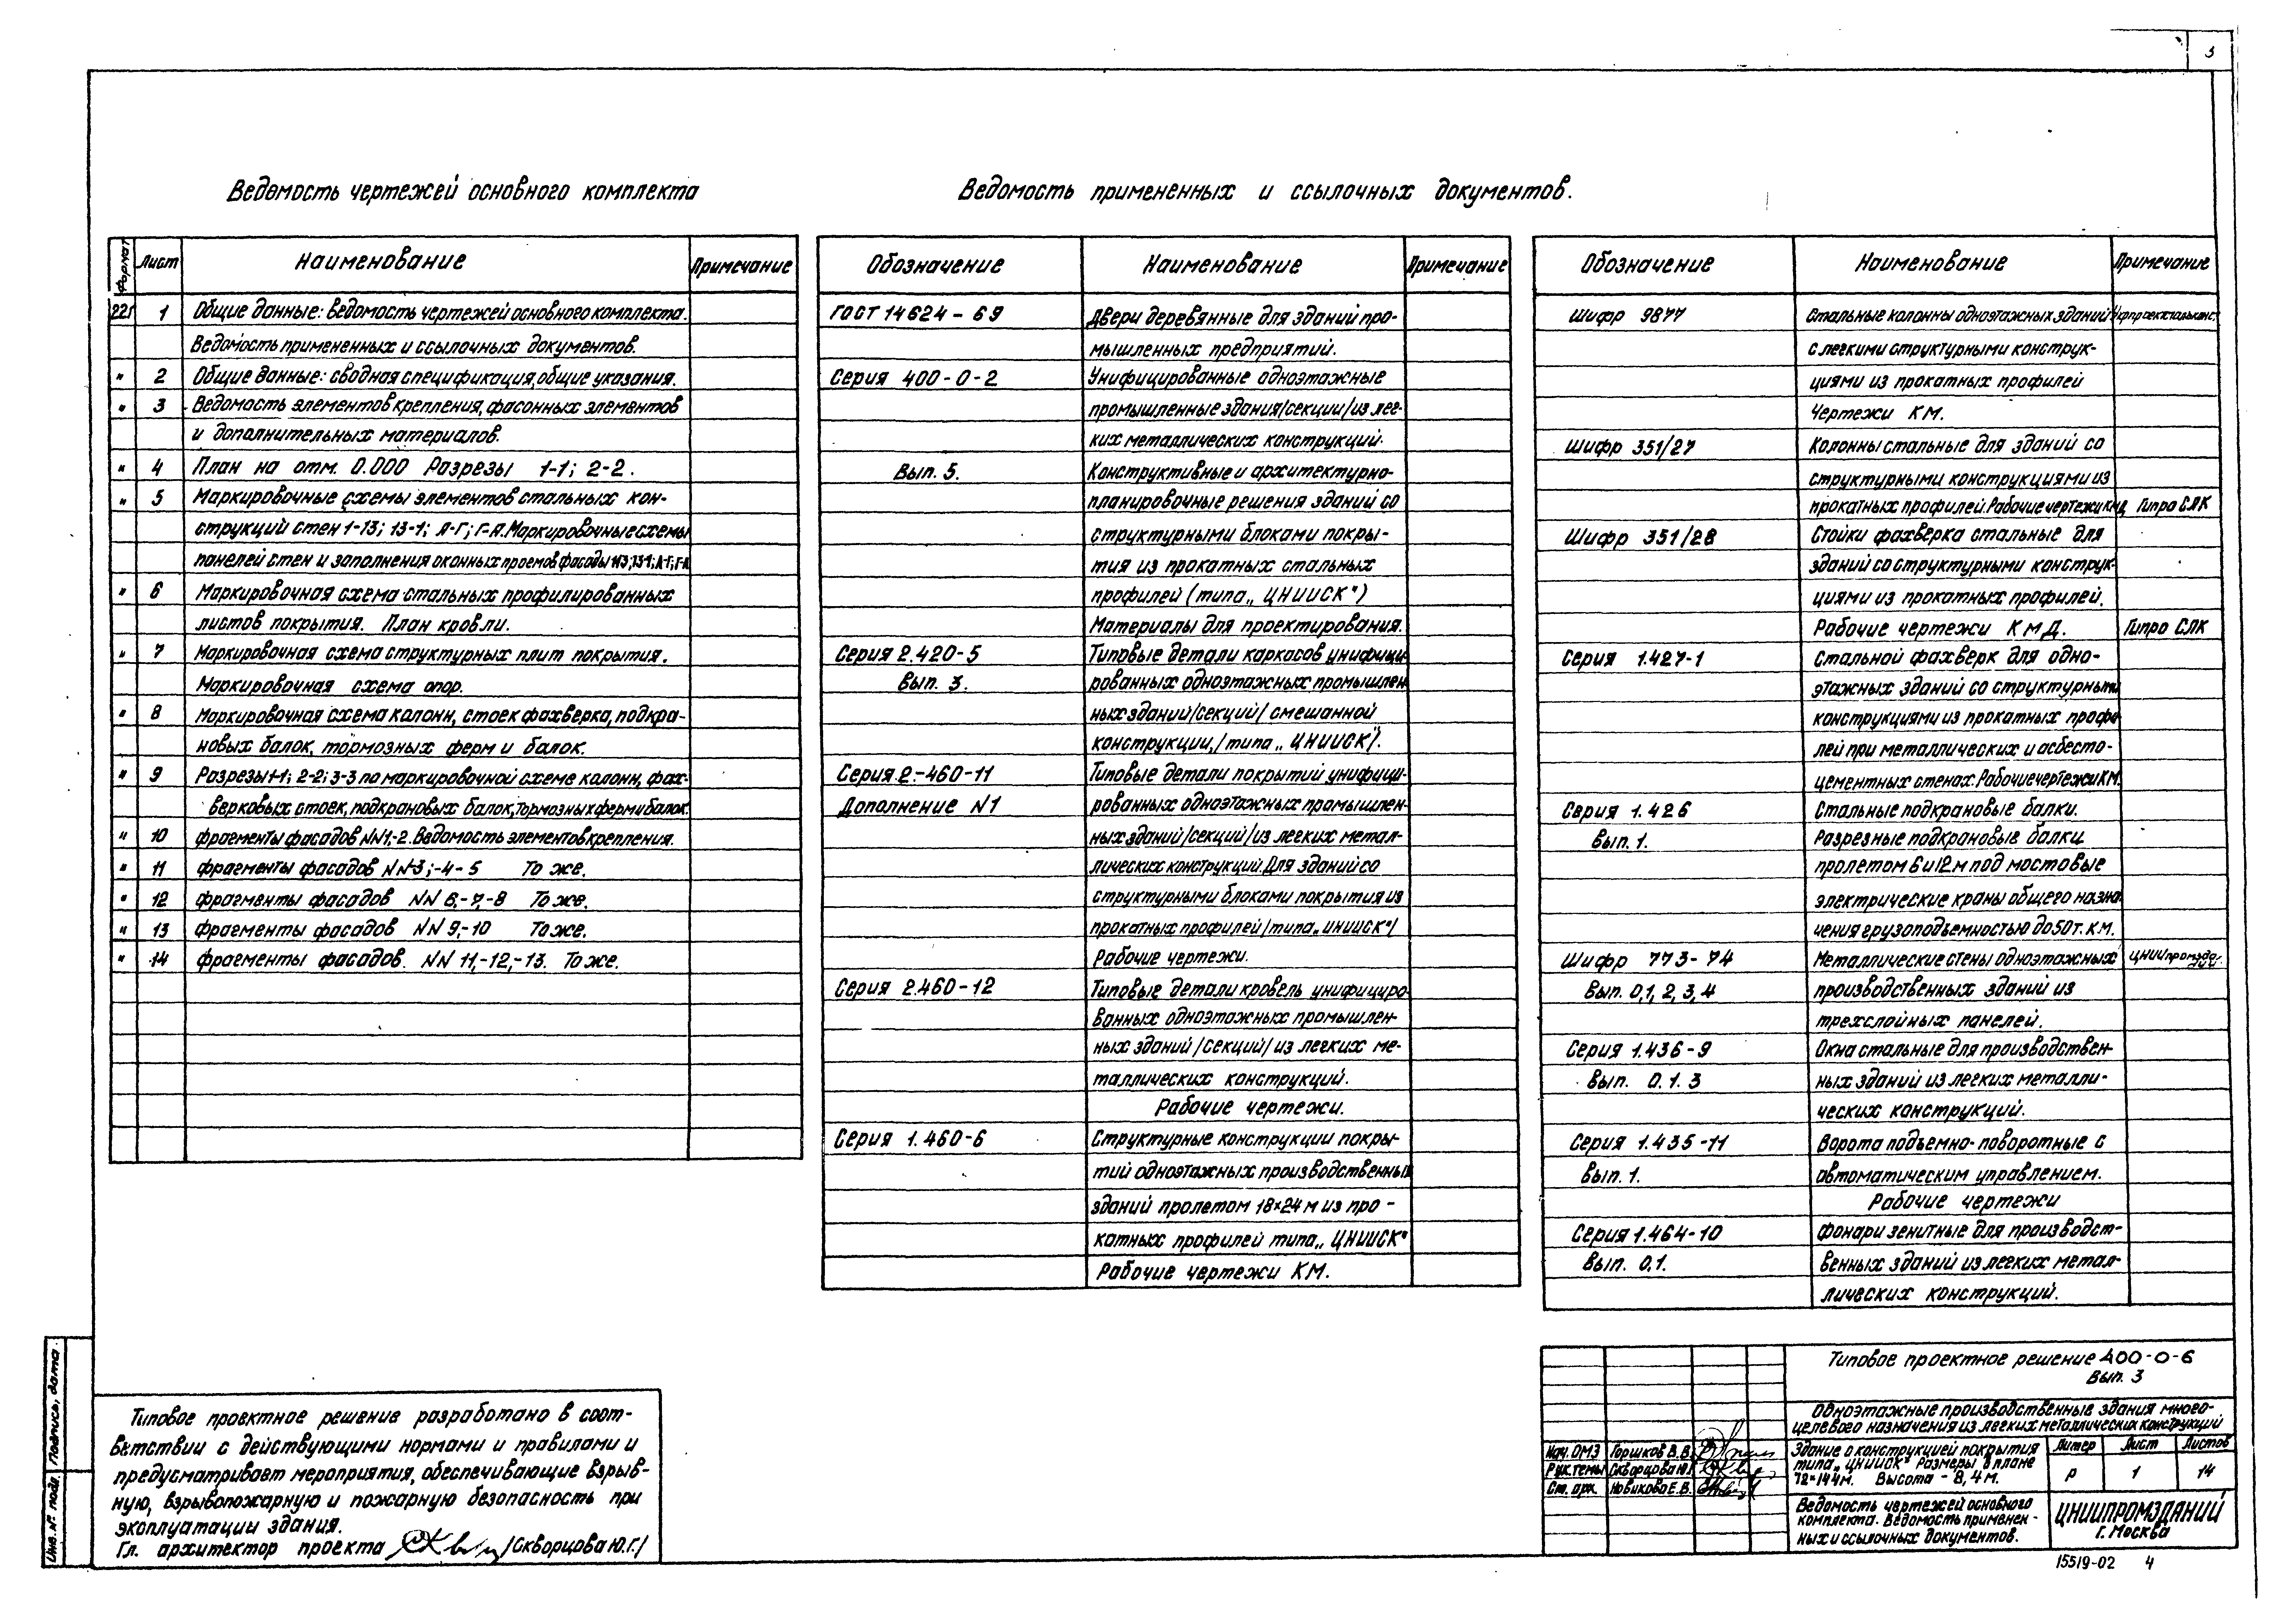 3
Ведомость чертежей основного комплекта
Формат Лист Наименование Примечание
22г 1 Общие данные: Ведомость чертежей основного комплекта.
Ведомость примененных и ссылочных документов.
" 2 Общие данные: сводная спецификация, общие указания.
" 3 Ведомость элементов крепления, фасонных элементов
и дополнительных материалов.
" 4 План на отм. 0.000 Разрезы 1-1; 2-2.
" 5 Маркировочные схемы элементов стальных кон-
струкций стен 1-13; 13-1; А-Г; Г-А. Маркировочные схемы
панелей стен и заполнения оконных проемов фасады 1-13; 13-1; А-Г; Г-А
" 6 Маркировочная схема стальных профилированных
листов покрытия. План кровли.
" 7 Маркировочная схема структурных плит покрытия.
Маркировочная схема опор.
" 8 Маркировочная схема колонн, стоек фахверка, подкра-
новых балок, тормозных ферм и балок.
" 9 Разрезы 1-1; 2-2; 3-3 по маркировочной схеме колонн, фах-
верковых стоек, подкрановых балок, тормозных ферм и балок.
" 10 Фрагменты фасадов NN1,-2. Ведомость элементов крепления.
" 11 Фрагменты фасадов NN3;-4-5 То же.
" 12 Фрагменты фасадов NN 6,-7,-8 То же.
" 13 Фрагменты фасадов NN 9,-10 То же.
" 14 Фрагменты фасадов. NN 11,-12,-13. То же.
Ведомость примененных и ссылочных документов.
Обозначение Наименование Примечание
ГОСТ 14624-69 Двери деревянные для зданий про-
мышленных предприятий.
Серия 400-0-2 Унифицированные одноэтажные
промышленные здания/секции/из лег-
ких металлических конструкций.
Вып. 5. Конструктивные и архитектурно-
планировочные решения зданий со
структурными блоками покры-
тия из прокатных стальных
профилей (типа „ЦНИИСК")
Материалы для проектирования.
Серия 2.420-5 Типовые детали каркасов унифици-
Вып. 3. рованных одноэтажных промышлен-
ных зданий/секций/ смешанной
конструкции, /типа „ЦНИИСК"/.
Серия 2.-460-11 Типовые детали покрытий унифици-
Дополнение N1 рованных одноэтажных промышлен-
ных зданий/секций/из легких метал-
лических конструкций. Для зданий со
структурными блоками покрытия из
прокатных профилей/типа „ЦНИИСК"/
Рабочие чертежи.
Серия 2.460-12 Типовые детали кровель унифициро-
ванных одноэтажных промышлен-
ных зданий /секций/ из легких ме-
таллических конструкций.
Рабочие чертежи.
Серия 1.460-6 Структурные конструкции покры-
тий одноэтажных производственных
зданий пролетом 18×24 м из про-
катных профилей типа „ЦНИИСК"
Рабочие чертежи КМ.
Обозначение Наименование Примечание
Шифр 9877 Стальные колонны одноэтажных зданий
с легкими структурными конструк-
циями из прокатных профилей
Чертежи КМ.
Шифр 351/27 Колонны стальные для зданий со
структурными конструкциями из
прокатных профилей. Рабочие чертежи КМД Гипро СЛК
Шифр 351/28 Стойки фахверка стальные для
зданий со структурными конструк-
циями из прокатных профилей.
Рабочие чертежи КМД. Гипро СЛК
Серия 1.427-1 Стальной фахверк для одно-
этажных зданий со структурными
конструкциями из прокатных профи-
лей при металлических и асбесто-
цементных стенах. Рабочие чертежи КМ.
Серия 1.426 Стальные подкрановые балки.
Вып. 1. Разрезные подкрановые балки
пролетом 6 и 12 м под мостовые
электрические краны общего назна-
чения грузоподъемностью до 50т. КМ.
Шифр 773-74 Металлические стены одноэтажных ЦНИИпромзда-
ний
Вып. 0,1, 2, 3, 4 производственных зданий из
трехслойных панелей.
Серия 1.436-9 Окна стальные для производствен-
Вып. 0. 1. 3 ных зданий из легких металли-
ческих конструкций.
Серия 1.435-11 Ворота подъемно-поворотные с
Вып. 1. автоматическим управлением.
Рабочие чертежи
Серия 1.464-10 Фонари зенитные для производст-
Вып. 0,1. венных зданий из легких метал-
лических конструкций.
Типовое проектное решение разработано в соот-
ветствии с действующими нормами и правилами и
предусматривает мероприятия, обеспечивающие взрыв-
ную, взрывопожарную и пожарную безопасность при
эксплуатации здания.
Гл. архитектор проекта /Скворцова Ю.Г./
Подпись, дата
Инв. № подл.
Типовое проектное решение 400-0-6
Вып. 3
Одноэтажные производственные здания много-
целевого назначения из легких металлических конструкций
Нач. ОМЗ Горшков В.В.
Рук. темы Скворцова Ю.Г.
Ст. арх. Новикова Е.В.
Здание с конструкцией покрытия
типа „ЦНИИСК" Размеры в плане
72×144м. Высота - 8,4 м.
Литер Лист Листов
Р 1 14
Ведомость чертежей основного
комплекта. Ведомость применен-
ных и ссылочных документов.
ЦНИИПРОМЗДАНИЙ
г. Москва
15519-02 4